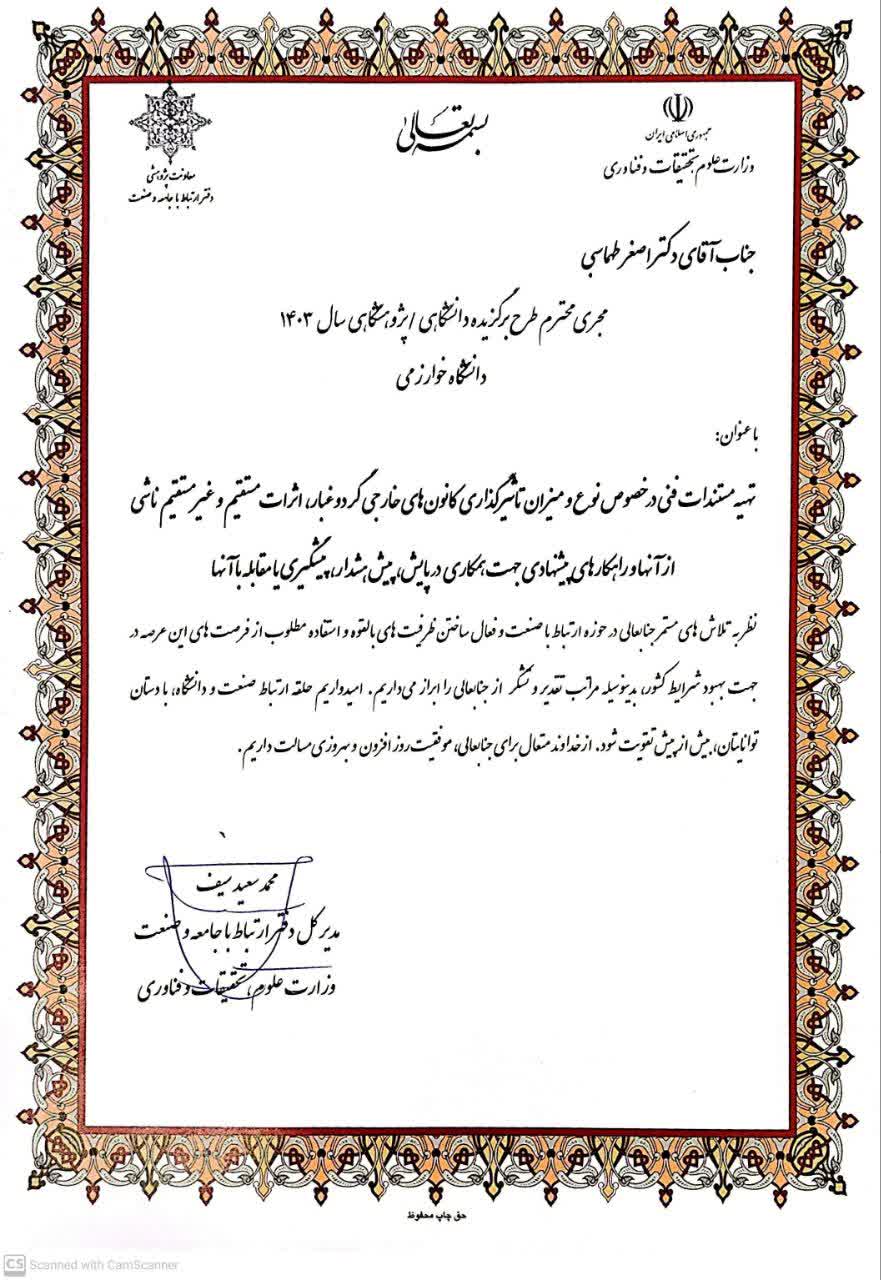 بسمه تعالی
جمهوری اسلامی ایران
وزارت علوم تحقیقات و فناوری
معاونت پژوهشی
دفتر ارتباط با جامعه و صنعت
جناب آقای دکتر اصغر طهماسبی
مجری محترم طرح برگزیده دانشگاهی / پژوهشگاهی سال ۱۴۰۳
دانشگاه خوارزمی
با عنوان:
تهیه مستندات فنی در خصوص نوع و میزان تأثیرگذاری کانون های خارجی گرد و غبار، اثرات مستقیم و غیر مستقیم ناشی
از آنها و راهکارهای پیشنهادی جهت همکاری در پایش، پیش هشدار، پیشگیری یا مقابله با آنها
نظر به تلاش های مستمر جنابعالی در حوزه ارتباط با صنعت و فعال ساختن ظرفیت های بالقوه و استفاده مطلوب از فرصت های این عرصه در
جهت بهبود شرایط کشور، بدینوسیله مراتب تقدیر و تشکر از جنابعالی را ابراز می‌داریم. امیدواریم حلقه ارتباط صنعت و دانشگاه، با دستان
توانایتان، بیش از پیش تقویت شود. از خداوند متعال برای جنابعالی، موفقیت روز افزون و بهروزی مسالت داریم.
محمد سعید سیف
مدیر کل دفتر ارتباط با جامعه و صنعت
وزارت علوم، تحقیقات و فناوری
حق چاپ محفوظ
CS Scanned with CamScanner